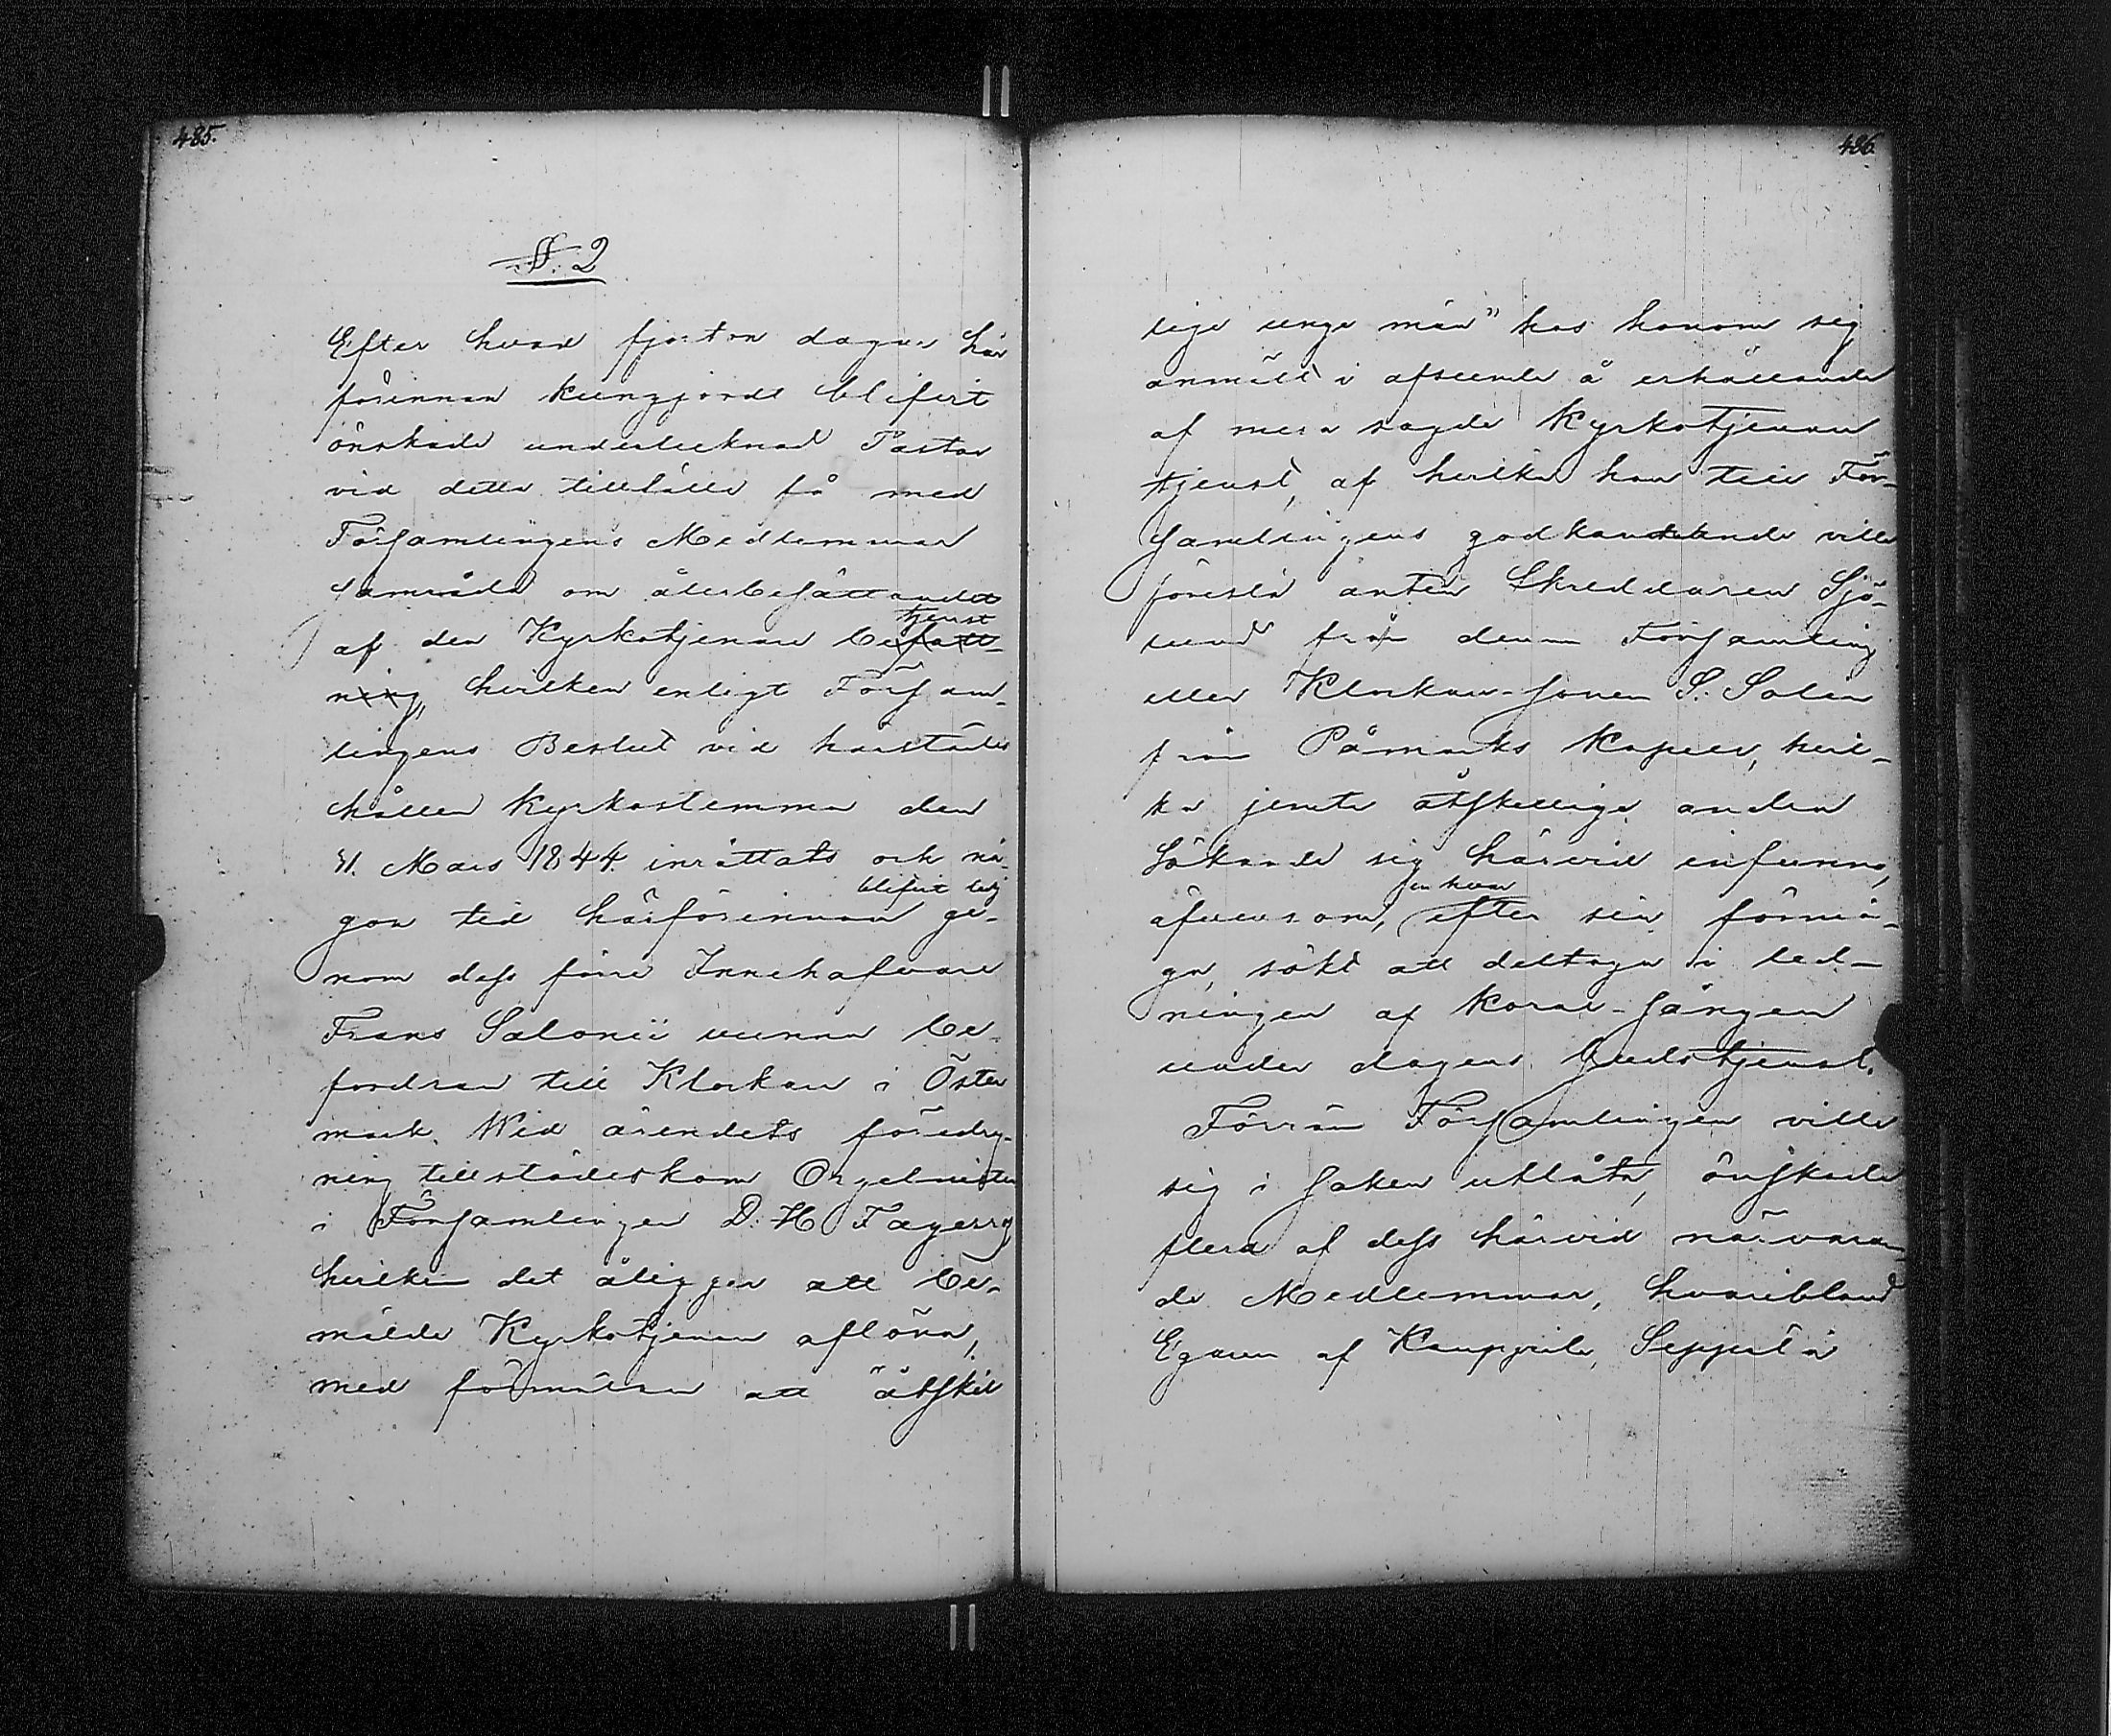 485.
§. 2
Efter hvad fjorton dagar här
förinnan kungjordt blifvit
önskade undertecknad Pastor
vid detta tillfälle få med
Församlingens Medlemmar
samråda om återbesättandet
tjenst
af den Kyrkotjenare befatt-
ning, hvilken enligt Försam-
lingens Beslut vid härstädes
hållen Kyrkostemma den
31. Mars 1844. inrättats och nå-
blifvit ledig
gon tid härförinnan ge-
nom dess förre Innehafvare
Frans Salonii vunna be-
fordran till Klockare i Öster
mark. Wid ärendets föredrag-
ning tillstädeskom Orgelnisten
i Församlingen D. H. Fagerroj
hvilken det åligger att be-
mälde Kyrkotjenare aflöna,
med förmälan att "åtskil
486.
lige unge män" hos honom sig
anmält i afseende å erhållande
af mera sagde Kyrkotjenare
tjenst, af hvilka han till För-
samlingens godkännande ville
föreslå anten Skreddaren Sjö-
lund från denna Församling
eller Klockare-sonen S. Salin
från Påmarks Kapell, hvil-
ka jemte åtskillige andra
Sökande sig härvid infunno,
en hvar
äfvensom, efter sin förmå-
ga, sökt att deltaga i led-
ningen af Koral-sången
under dagens Gudstjenst.
Förrän Församlingen ville
sig i saken utlåta, önskade
flera af dess härvid närvaran-
de Medlemmar, hvaribland
Egaren af Kauppila, Seppälä